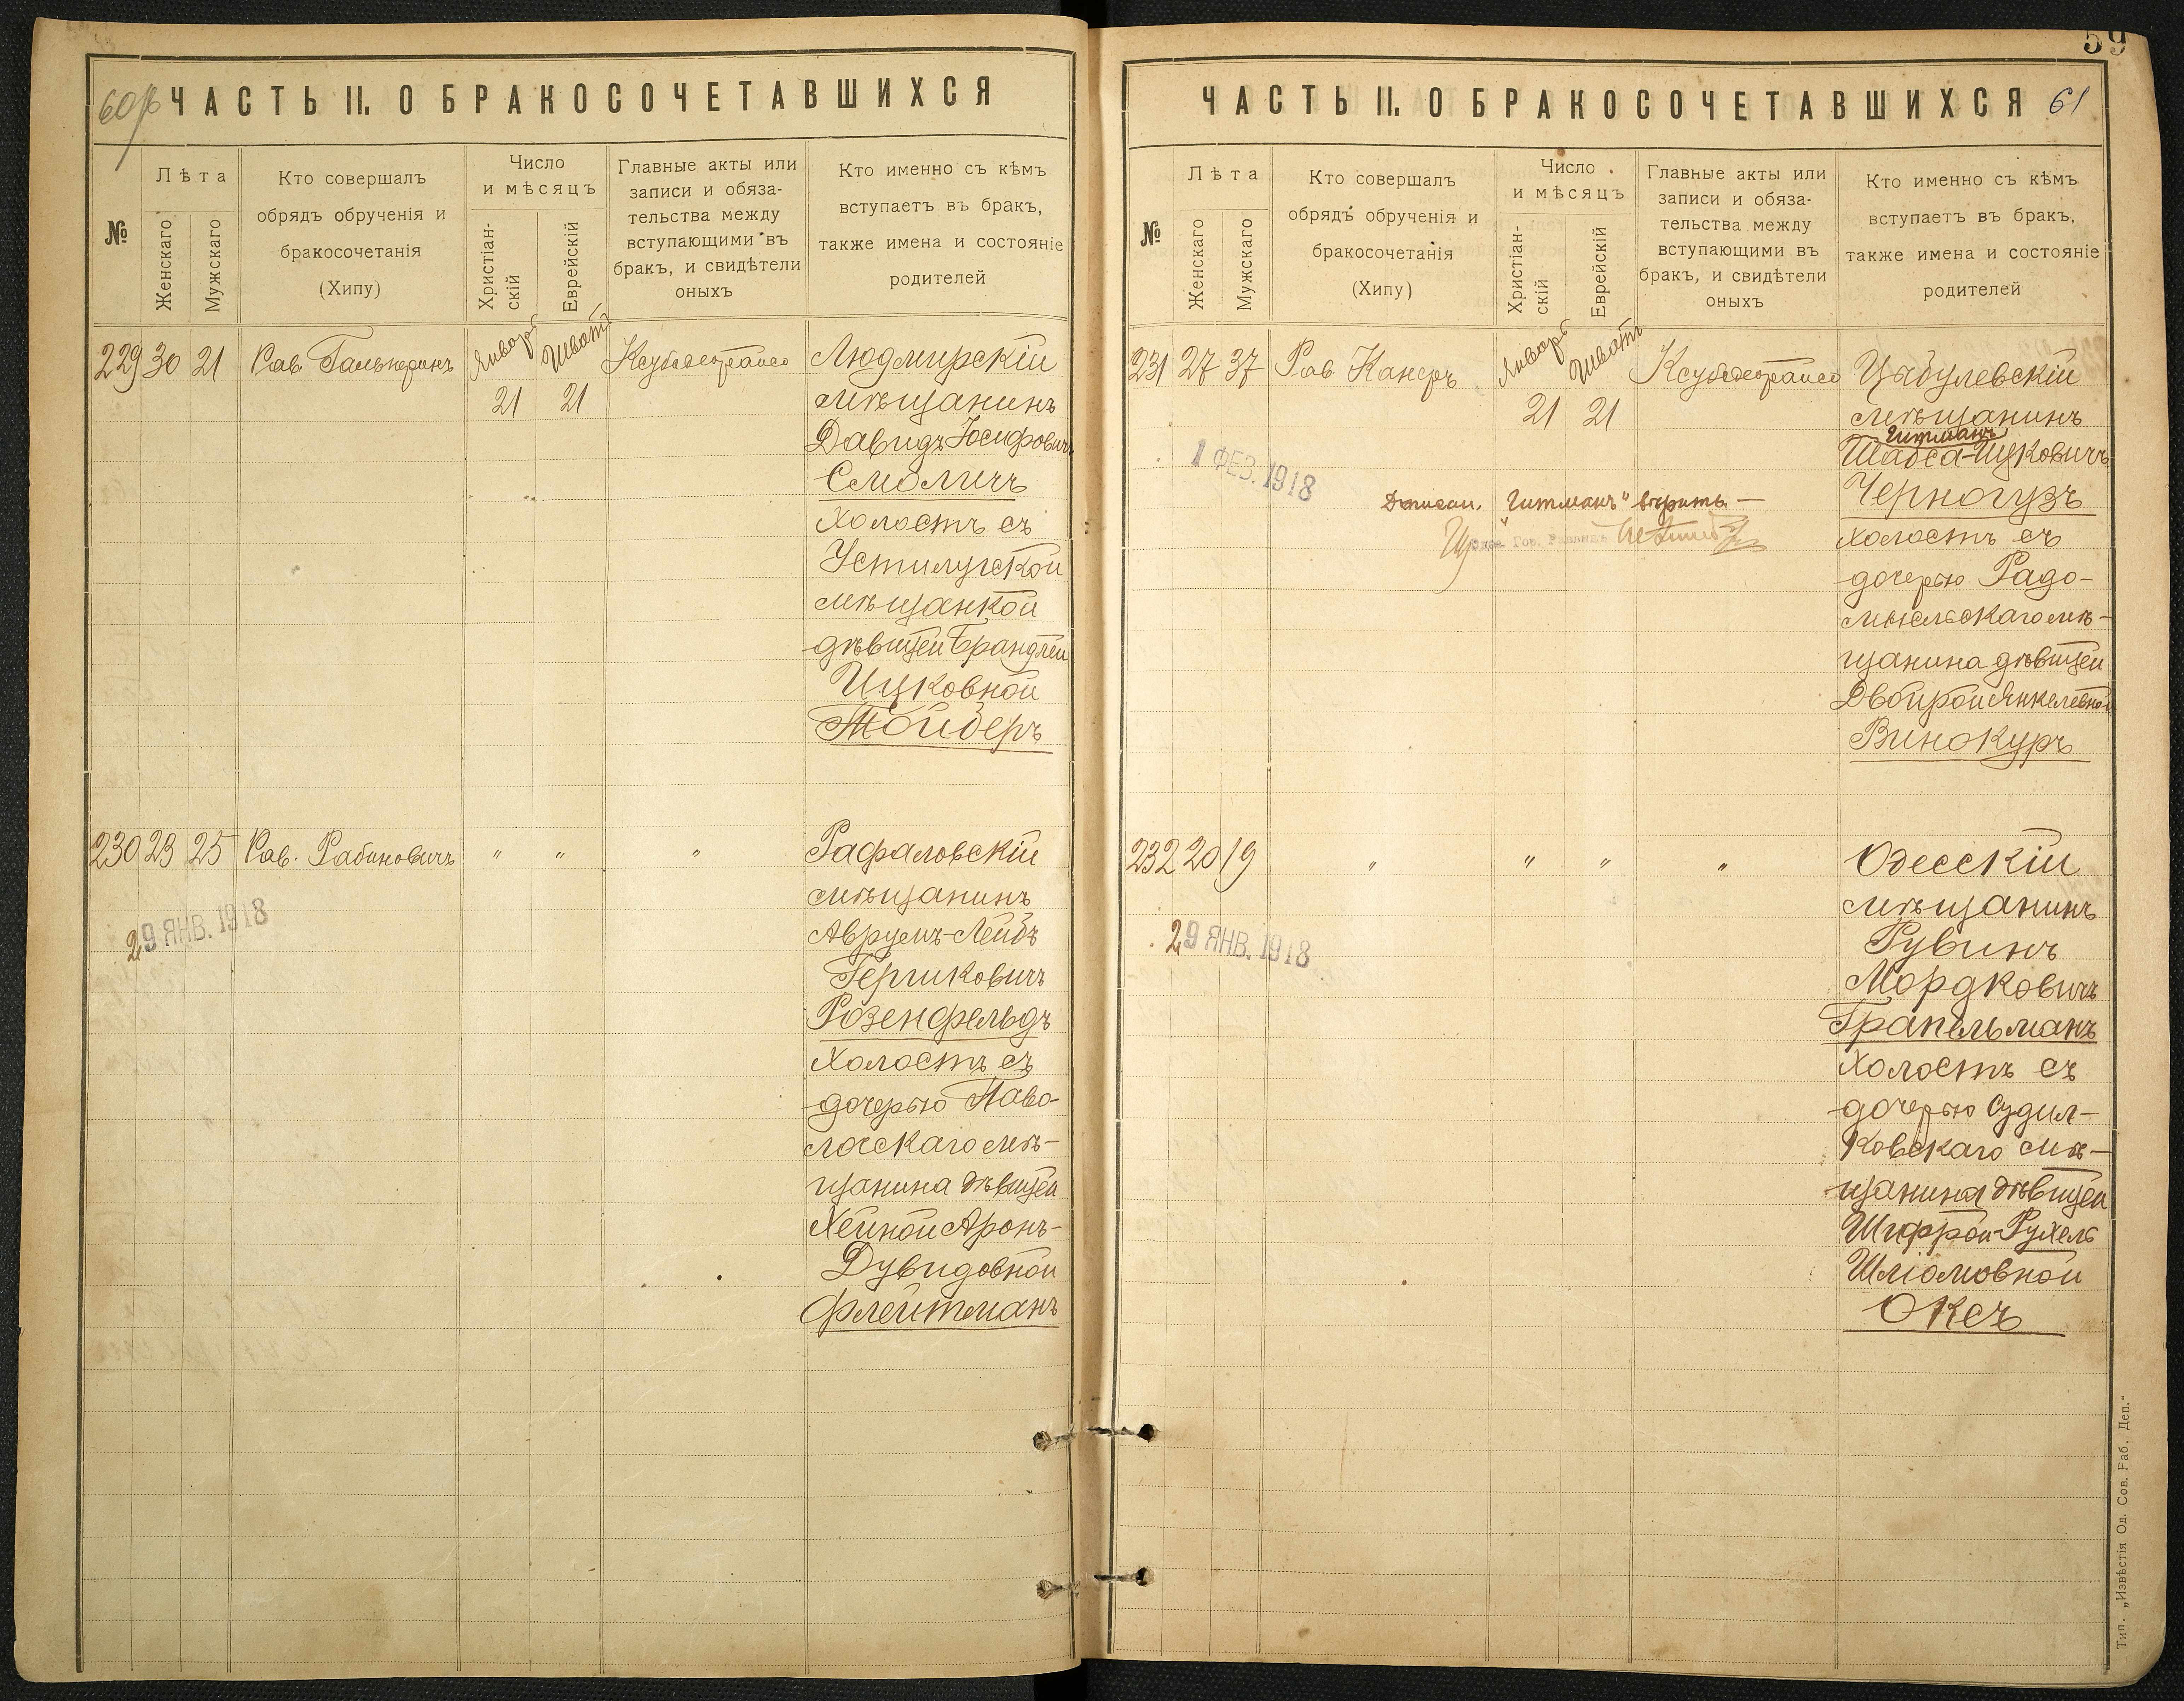 60об
ЧАСТЬ II. О БРАКОСОЧЕТАВШИХСЯ
№
Лѣта
Женскаго
Мужскаго
Кто совершалъ
обрядъ обрученія и
бракосочетанія
(Хипу)
Число
и мѣсяцъ
Христіан-
скій
Еврейскій
Главные акты или
записи и обяза-
тельства между
вступающими въ
бракъ, и свидѣтели
оныхъ
Кто именно съ кѣмъ
вступаетъ въ бракъ,
также имена и состояніе
родителей
229 30 21 Рав. Гальперинъ Январ Шват
21 21
Людмирскій
мѣщанинъ
Давидъ Іосифовичъ
Смоличъ
холостъ съ
Устилугской
мѣщанкой
дѣвицей Брандлей
Ицковной
Тойберъ
230 23 25 Рав. Рабиновичъ " " "
29 ЯНВ. 1918
Рафаловскій
мѣщанинъ
Аврумъ-Лейбъ
Гершковичъ
Розенфельдъ
холостъ съ
дочерью Паво-
лочскаго мѣ-
щанина дѣвицей
Хейной Аронъ-
Дувидовной
Флейтманъ
59
ЧАСТЬ II. О БРАКОСОЧЕТАВШИХСЯ 61
№
Лѣта
Женскаго
Мужскаго
Кто совершалъ
обрядъ обрученія и
бракосочетанія
(Хипу)
Число
и мѣсяцъ
Христіан-
скій
Еврейскій
Главные акты или
записи и обяза-
тельства между
вступающими въ
бракъ, и свидѣтели
оныхъ
Кто именно съ кѣмъ
вступаетъ въ бракъ,
также имена и состояніе
родителей
231 27 37 Рав. Канеръ Январ Шват
21 21
1 ФЕВ. 1918
"Гитманъ" вѣрить —
Цыбулевскій
мѣщанинъ
Гитманъ
Шабса-Ицковичъ
Черногузъ
холостъ съ
дочерью Радо-
мысльскаго мѣ-
щанина дѣвицей
Двойрой Янкелевной
Винокуръ
232 20 19 " " " "
29 ЯНВ. 1918
Одесскій
мѣщанинъ
Рувинъ
Мордковичъ
Грапельманъ
холостъ съ
дочерью Судил-
ковскаго мѣ-
щанина дѣвицей
Шифрой-Рухель
Шліомовной
Оксъ
Тип. „Извѣстія Од. Сов. Раб. Деп."